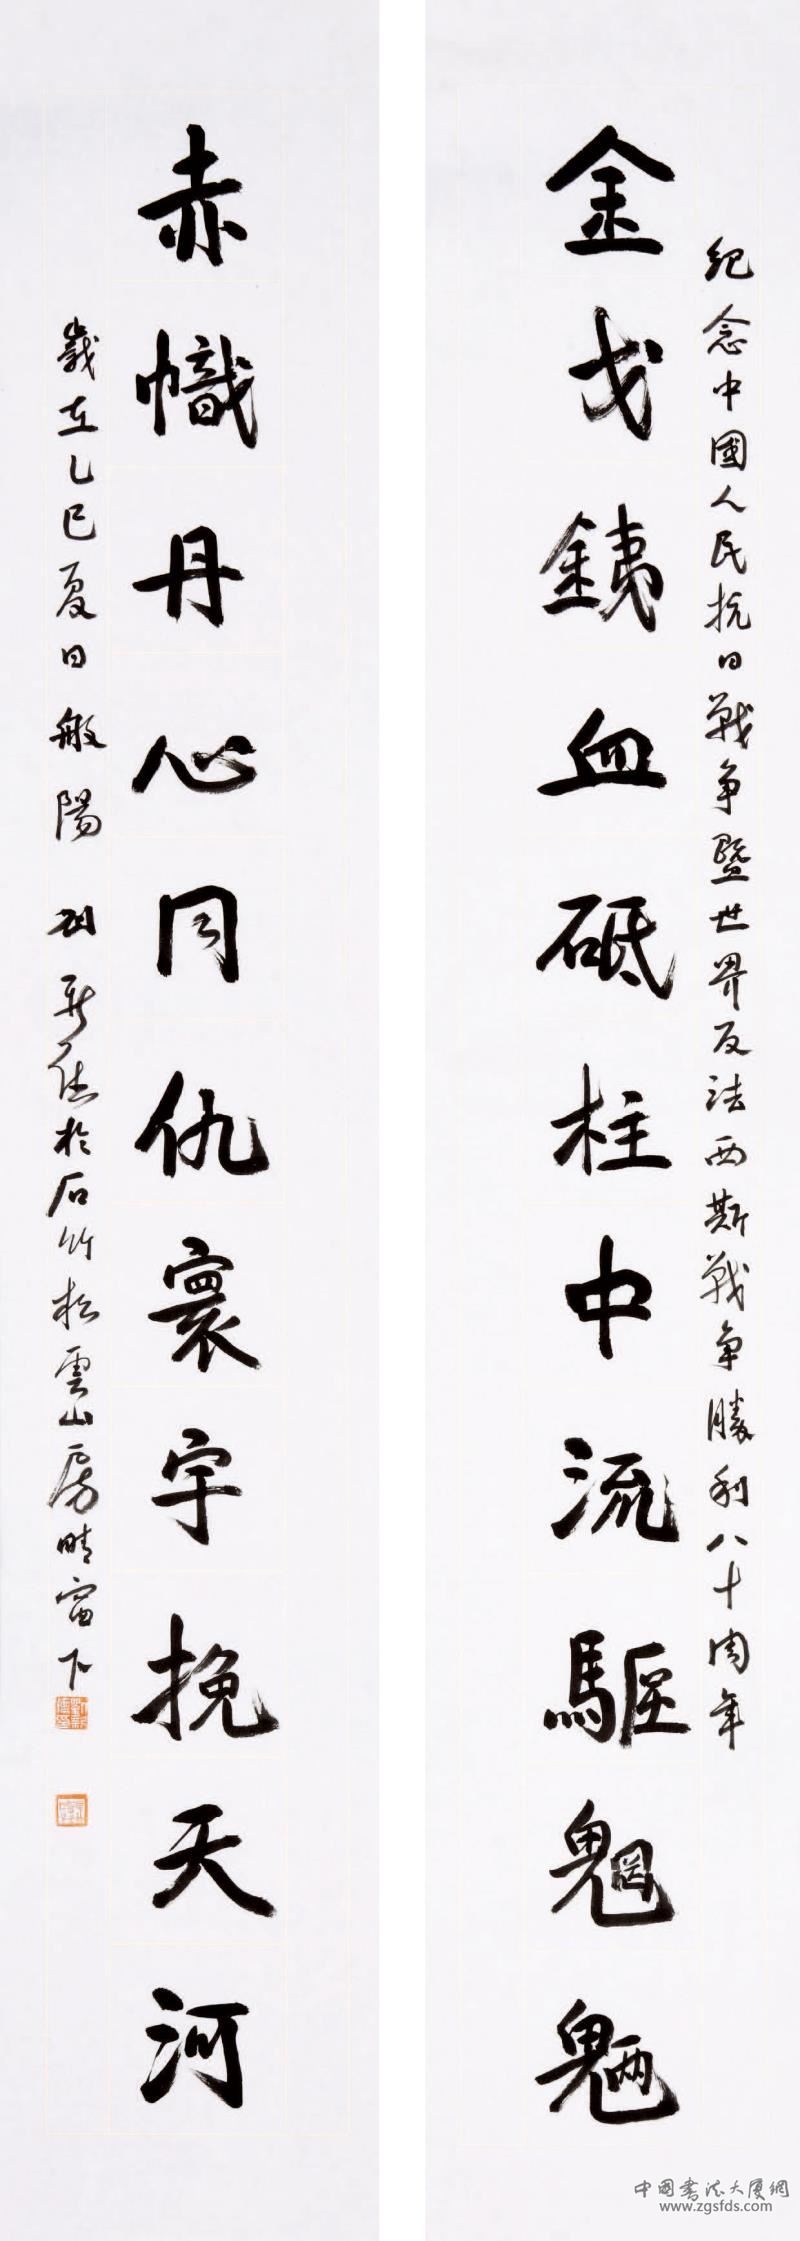 紀念中國人民抗日戰争暨世界反法西斯戰争勝利八十周年
金戈銕血砥柱中流驅魍魎
赤幟丹心同仇寰宇挽天河
歲在乙巳夏日般陽 刘新德於石竹松雲山房晴窗下
中国书法大厦網
www.zgsfds.com